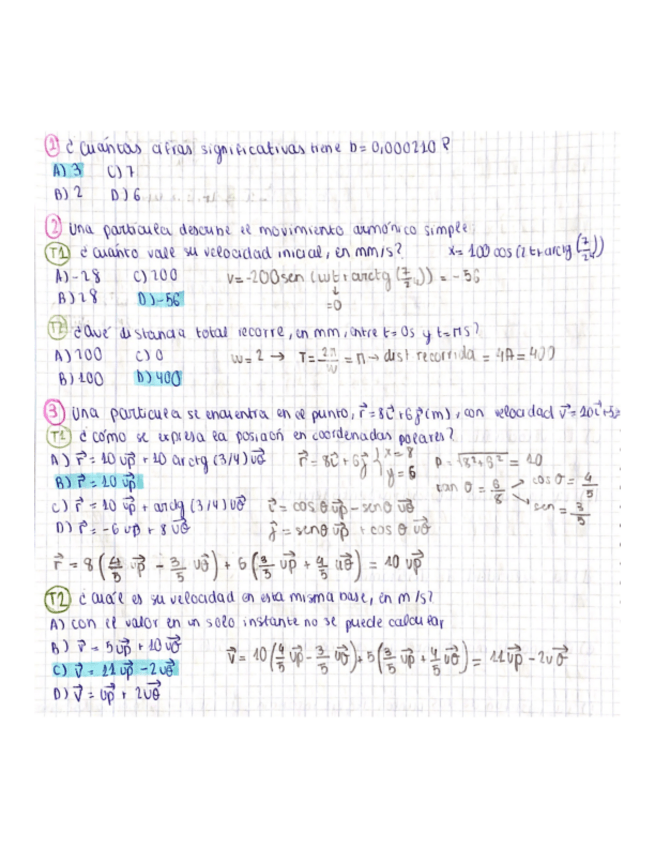 1 ¿Cuántas cifras significativas tiene b= 0,000210 ?
A) 3 C) 7
B) 2 D) 6
2 Una partícula describe el movimiento armónico simple
T1 ¿Cuánto vale su velocidad inicial, en mm/s? x= 100 cos (2t+arctg (7/24))
A) -28 C) 200 v= -200 sen (wt+arctg (7/24)) = -56
B) 28 D) -56 ↓ =0
T2 ¿Qué distancia total recorre, en mm, entre t=0s y t=πs?
A) 200 C) 0 w=2 → T= 2π/w = π → dist recorrida = 4A = 400
B) 100 D) 400
3 Una partícula se encuentra en el punto, r⃗=8i⃗+6j⃗(m), con velocidad v⃗=10i⃗+5j⃗
T1 ¿Cómo se expresa la posición en coordenadas polares?
A) r⃗= 10 uρ⃗ + 10 arctg (3/4) uθ⃗ r⃗= 8i⃗+6j⃗ { x=8 y=6 ρ= √8²+6² = 10
B) r⃗= 10 uρ⃗ tan θ = 6/8 → cos θ = 4/5
C) r⃗= 10 uρ⃗ + arctg (3/4) uθ⃗ i⃗= cos θ uρ⃗ - senθ uθ⃗ → sen = 3/5
D) r⃗= -6uρ⃗ + 8uθ⃗ j⃗= senθ uρ⃗ + cos θ uθ⃗
r⃗ = 8 (4/5 uρ⃗ - 3/5 uθ⃗) + 6 (3/5 uρ⃗ + 4/5 uθ⃗) = 10 uρ⃗
T2 ¿Cuál es su velocidad en esta misma base, en m/s?
A) con el valor en un solo instante no se puede calcular
B) v⃗= 5uρ⃗ + 10uθ⃗ v⃗= 10(4/5 uρ⃗ - 3/5 uθ⃗)+ 5(3/5 uρ⃗ + 4/5 uθ⃗) = 11uρ⃗ - 2uθ⃗
C) v⃗= 11uρ⃗ -2uθ⃗
D) v⃗= uρ⃗ + 2uθ⃗